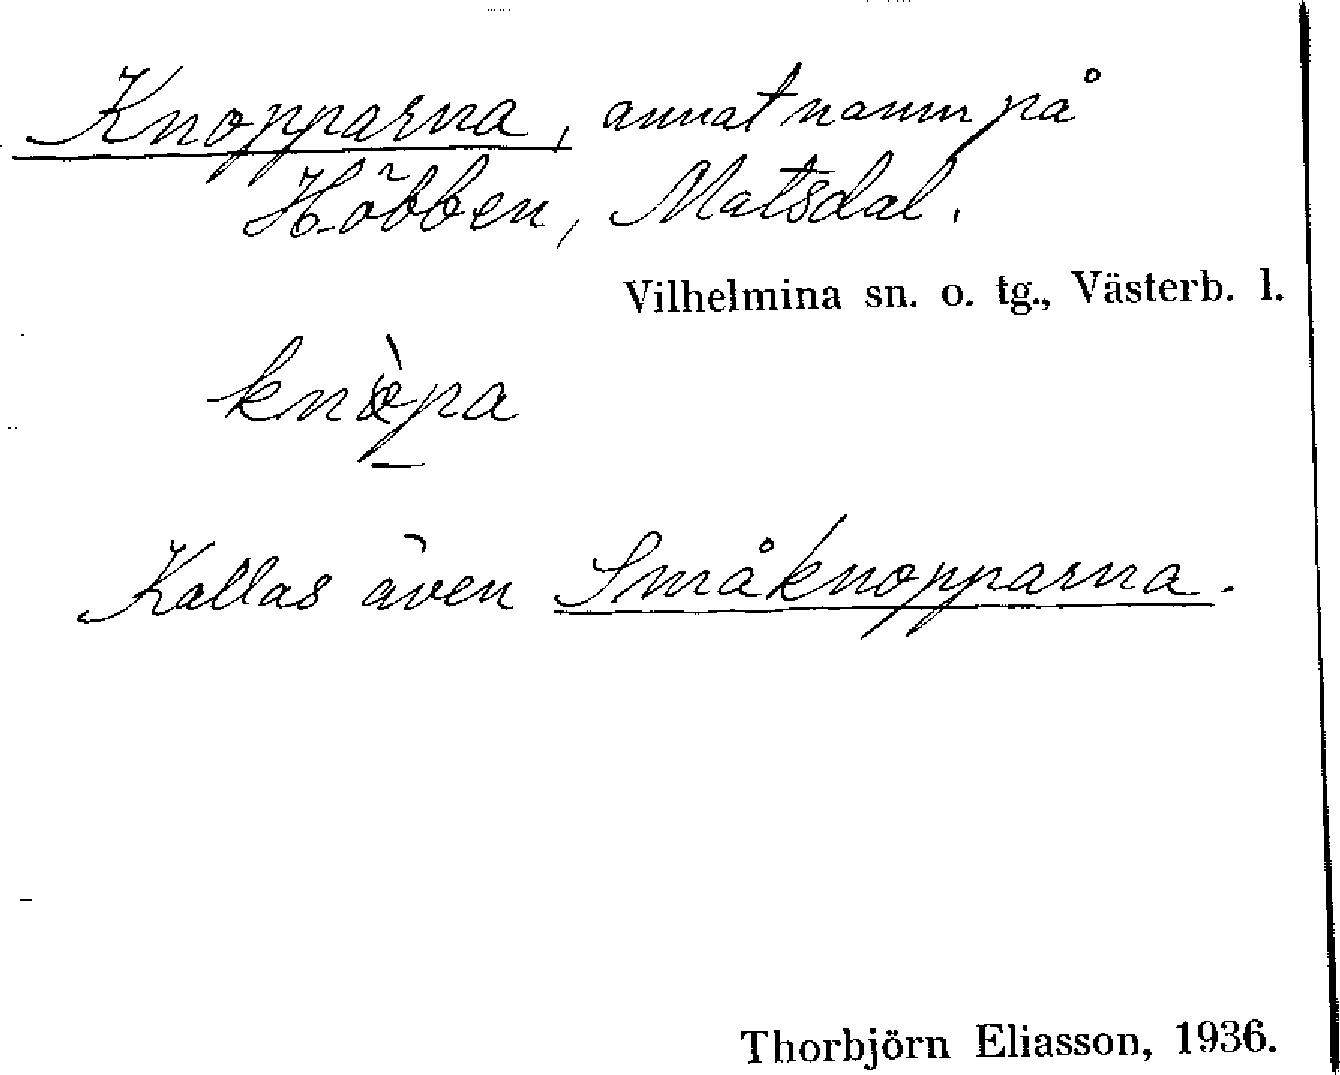 Knopparna, annat namn på
Höbben, Matsdal.
Vilhelmina sn. o. tg., Västerb. l.
knòpa
Kallas även Småknopparna.
Thorbjörn Eliasson, 1936.